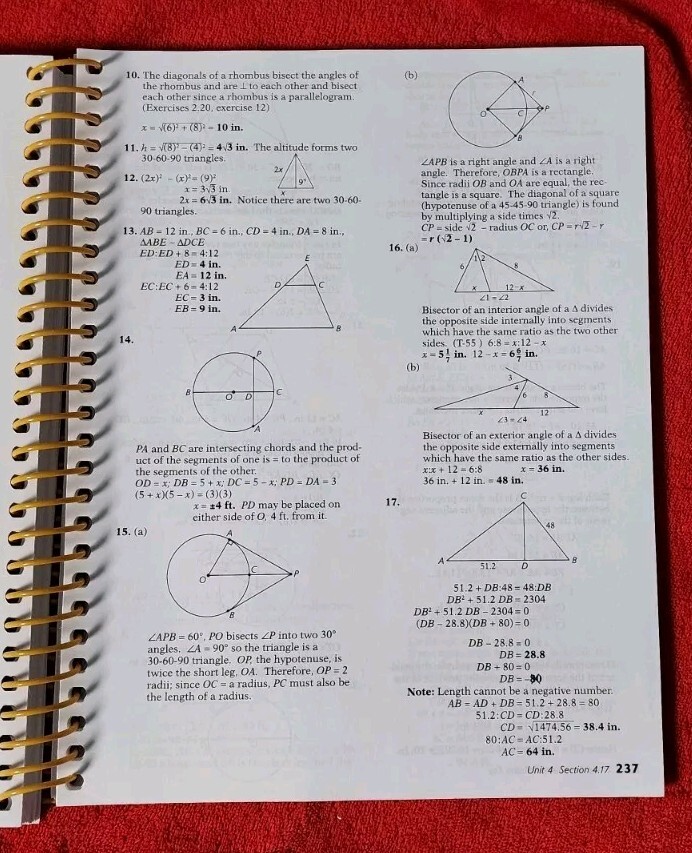 10. The diagonals of a rhombus bisect the angles of
the rhombus and are ⊥ to each other and bisect
each other since a rhombus is a parallelogram.
(Exercises 2.20, exercise 12)
x = √(6)² + (8)² = 10 in.
11. h = √(8)² − (4)² = 4√3 in. The altitude forms two
30-60-90 triangles.
2x
9"
x
12. (2x)² − (x)² = (9)²
x = 3√3 in
2x = 6√3 in. Notice there are two 30-60-
90 triangles.
13. AB = 12 in., BC = 6 in., CD = 4 in., DA = 8 in.,
ΔABE ~ ΔDCE
ED:ED + 8 = 4:12
ED = 4 in.
EA = 12 in.
EC:EC + 6 = 4:12
EC = 3 in.
EB = 9 in.
E
D
C
A
B
14.
P
B
O
D
C
A
PA and BC are intersecting chords and the prod-
uct of the segments of one is = to the product of
the segments of the other.
OD = x; DB = 5 + x; DC = 5 − x; PD = DA = 3
(5 + x)(5 − x) = (3)(3)
x = ±4 ft. PD may be placed on
either side of O, 4 ft. from it.
15. (a)
A
O
C
P
B
∠APB = 60°, PO bisects ∠P into two 30°
angles. ∠A = 90° so the triangle is a
30-60-90 triangle. OP, the hypotenuse, is
twice the short leg, OA. Therefore, OP = 2
radii; since OC = a radius, PC must also be
the length of a radius.
(b)
A
r
O
C
P
B
∠APB is a right angle and ∠A is a right
angle. Therefore, OBPA is a rectangle.
Since radii OB and OA are equal, the rec-
tangle is a square. The diagonal of a square
(hypotenuse of a 45-45-90 triangle) is found
by multiplying a side times √2.
CP = side √2 − radius OC or, CP = r√2 − r
= r (√2 − 1)
16. (a)
1 2
6
8
x
12-x
∠1 = ∠2
Bisector of an interior angle of a Δ divides
the opposite side internally into segments
which have the same ratio as the two other
sides. (T-55) 6:8 = x:12 − x
x = 5 1/7 in. 12 − x = 6 6/7 in.
(b)
3
4
6
8
x
12
∠3 = ∠4
Bisector of an exterior angle of a Δ divides
the opposite side externally into segments
which have the same ratio as the other sides.
x:x + 12 = 6:8 x = 36 in.
36 in. + 12 in. = 48 in.
17.
C
48
A
51.2
D
B
51.2 + DB:48 = 48:DB
DB² + 51.2 DB = 2304
DB² + 51.2 DB − 2304 = 0
(DB − 28.8)(DB + 80) = 0
DB − 28.8 = 0
DB = 28.8
DB + 80 = 0
DB = −80
Note: Length cannot be a negative number.
AB = AD + DB = 51.2 + 28.8 = 80
51.2:CD = CD:28.8
CD = √1474.56 = 38.4 in.
80:AC = AC:51.2
AC = 64 in.
Unit 4 Section 4.17 237